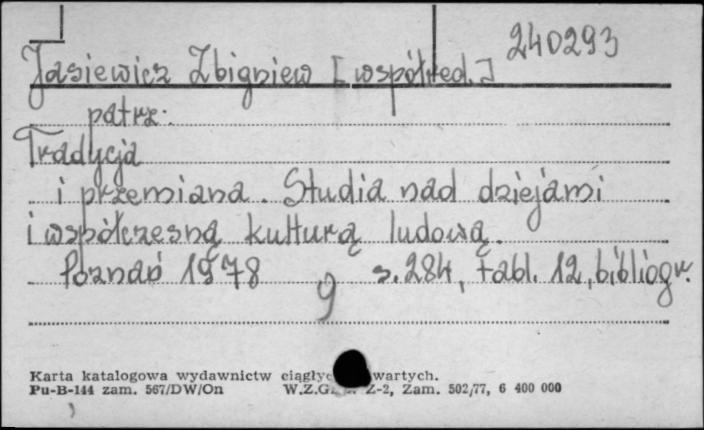 240293
Jasiewicz Zbigniew [współred.]
patrz:
Tradycja
i przemiana. Studia nad dziejami
i współczesną kulturą ludową.
Poznań 1978 s. 284, tabl. 12, bibliogr.
9
Karta katalogowa wydawnictw wartych.
Pu-B-144 zam. 567/DW/On Z-2, Zam. 502/77, 6 400 000